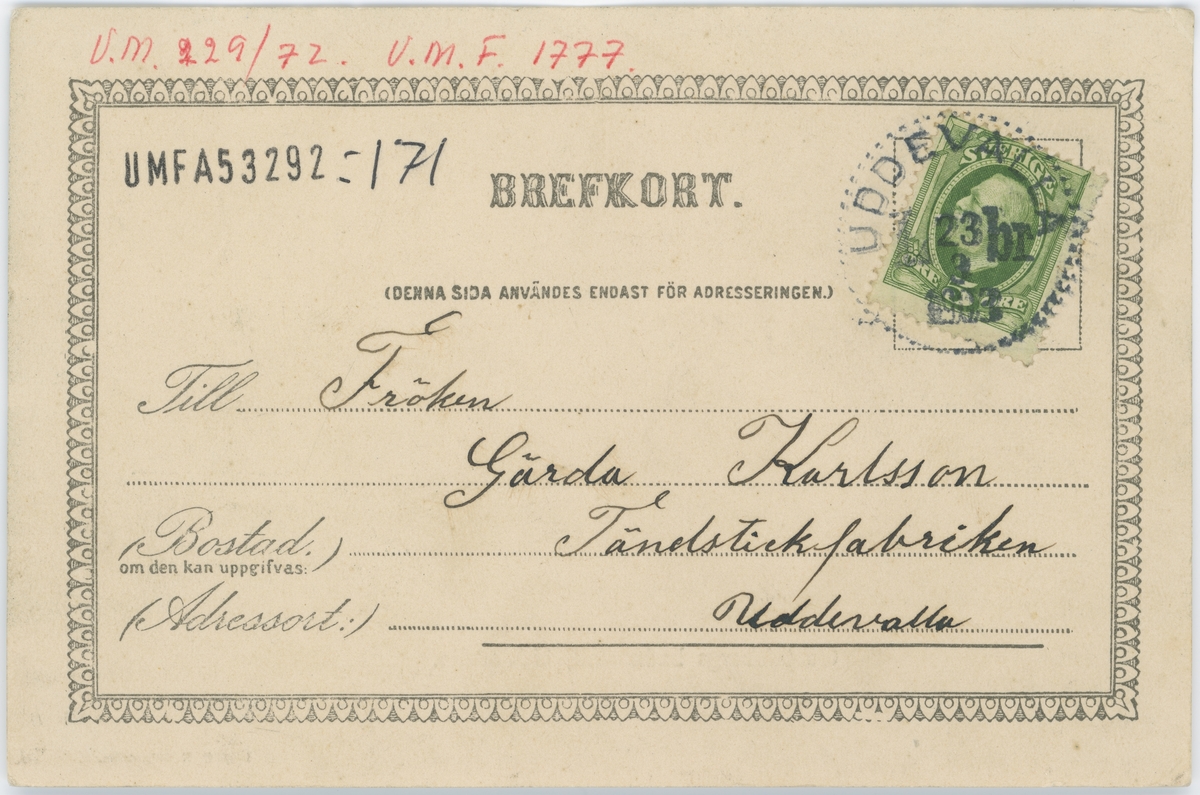 V.M. 229/72. V.M.F. 1777.
UMFA53292=171
BREFKORT.
UDDEVALLA
SVERIGE
23 br
3
(DENNA SIDA ANVÄNDES ENDAST FÖR ADRESSERINGEN.)
Till Fröken
Gärda Karlsson
(Bostad.) Tändstickfabriken
om den kan uppgifvas:
(Adressort:) Uddevalla